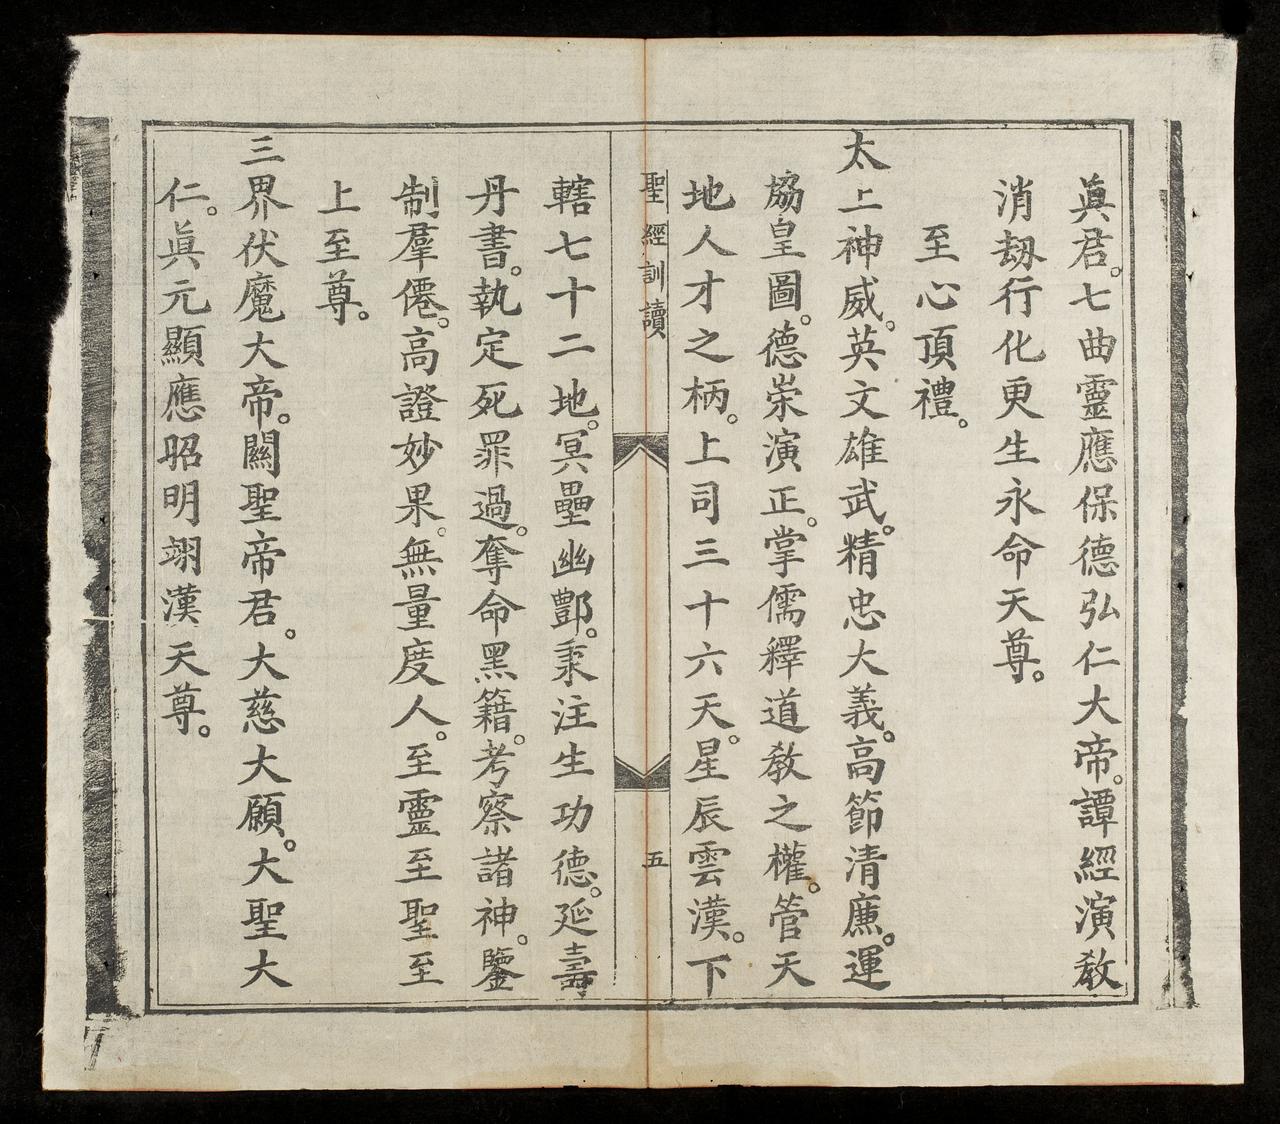 眞君。七曲靈應保德弘仁大帝。譚經演教
消劫行化更生永命天尊。
至心頂禮。
太上神威。英文雄武。精忠大義。高節清廉。運
協皇圖。德崇演正。掌儒釋道教之權。管天
地人才之柄。上司三十六天。星辰雲漢。下
聖經訓讀
五
轄七十二地。冥壘幽酆。秉注生功德。延壽
丹書。執定死罪過。奪命黑籍。考察諸神。鑒
制羣僊。高證妙果。無量度人。至靈至聖至
上至尊。
三界伏魔大帝。關聖帝君。大慈大願。大聖大
仁。眞元顯應昭明翊漢天尊。